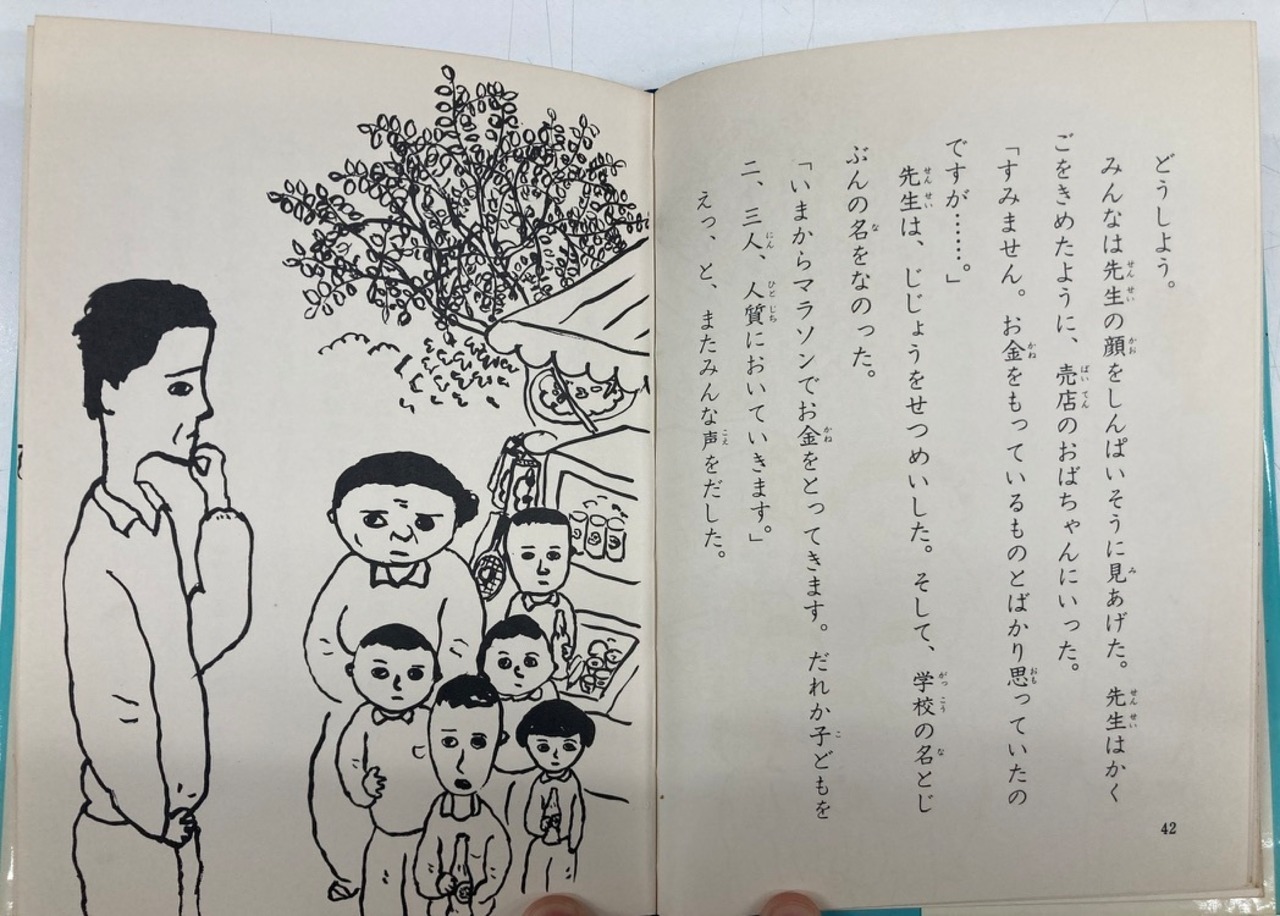 どうしよう。
みんなは先生の顔をしんぱいそうに見あげた。先生はかく
ごをきめたように、売店のおばちゃんにいった。
「すみません。お金をもっているものとばかり思っていたの
ですが……。」
先生は、じじょうをせつめいした。そして、学校の名とじ
ぶんの名をなのった。
「いまからマラソンでお金をとってきます。だれか子どもを
二、三人、人質においていきます。」
えっ、と、またみんな声をだした。
42